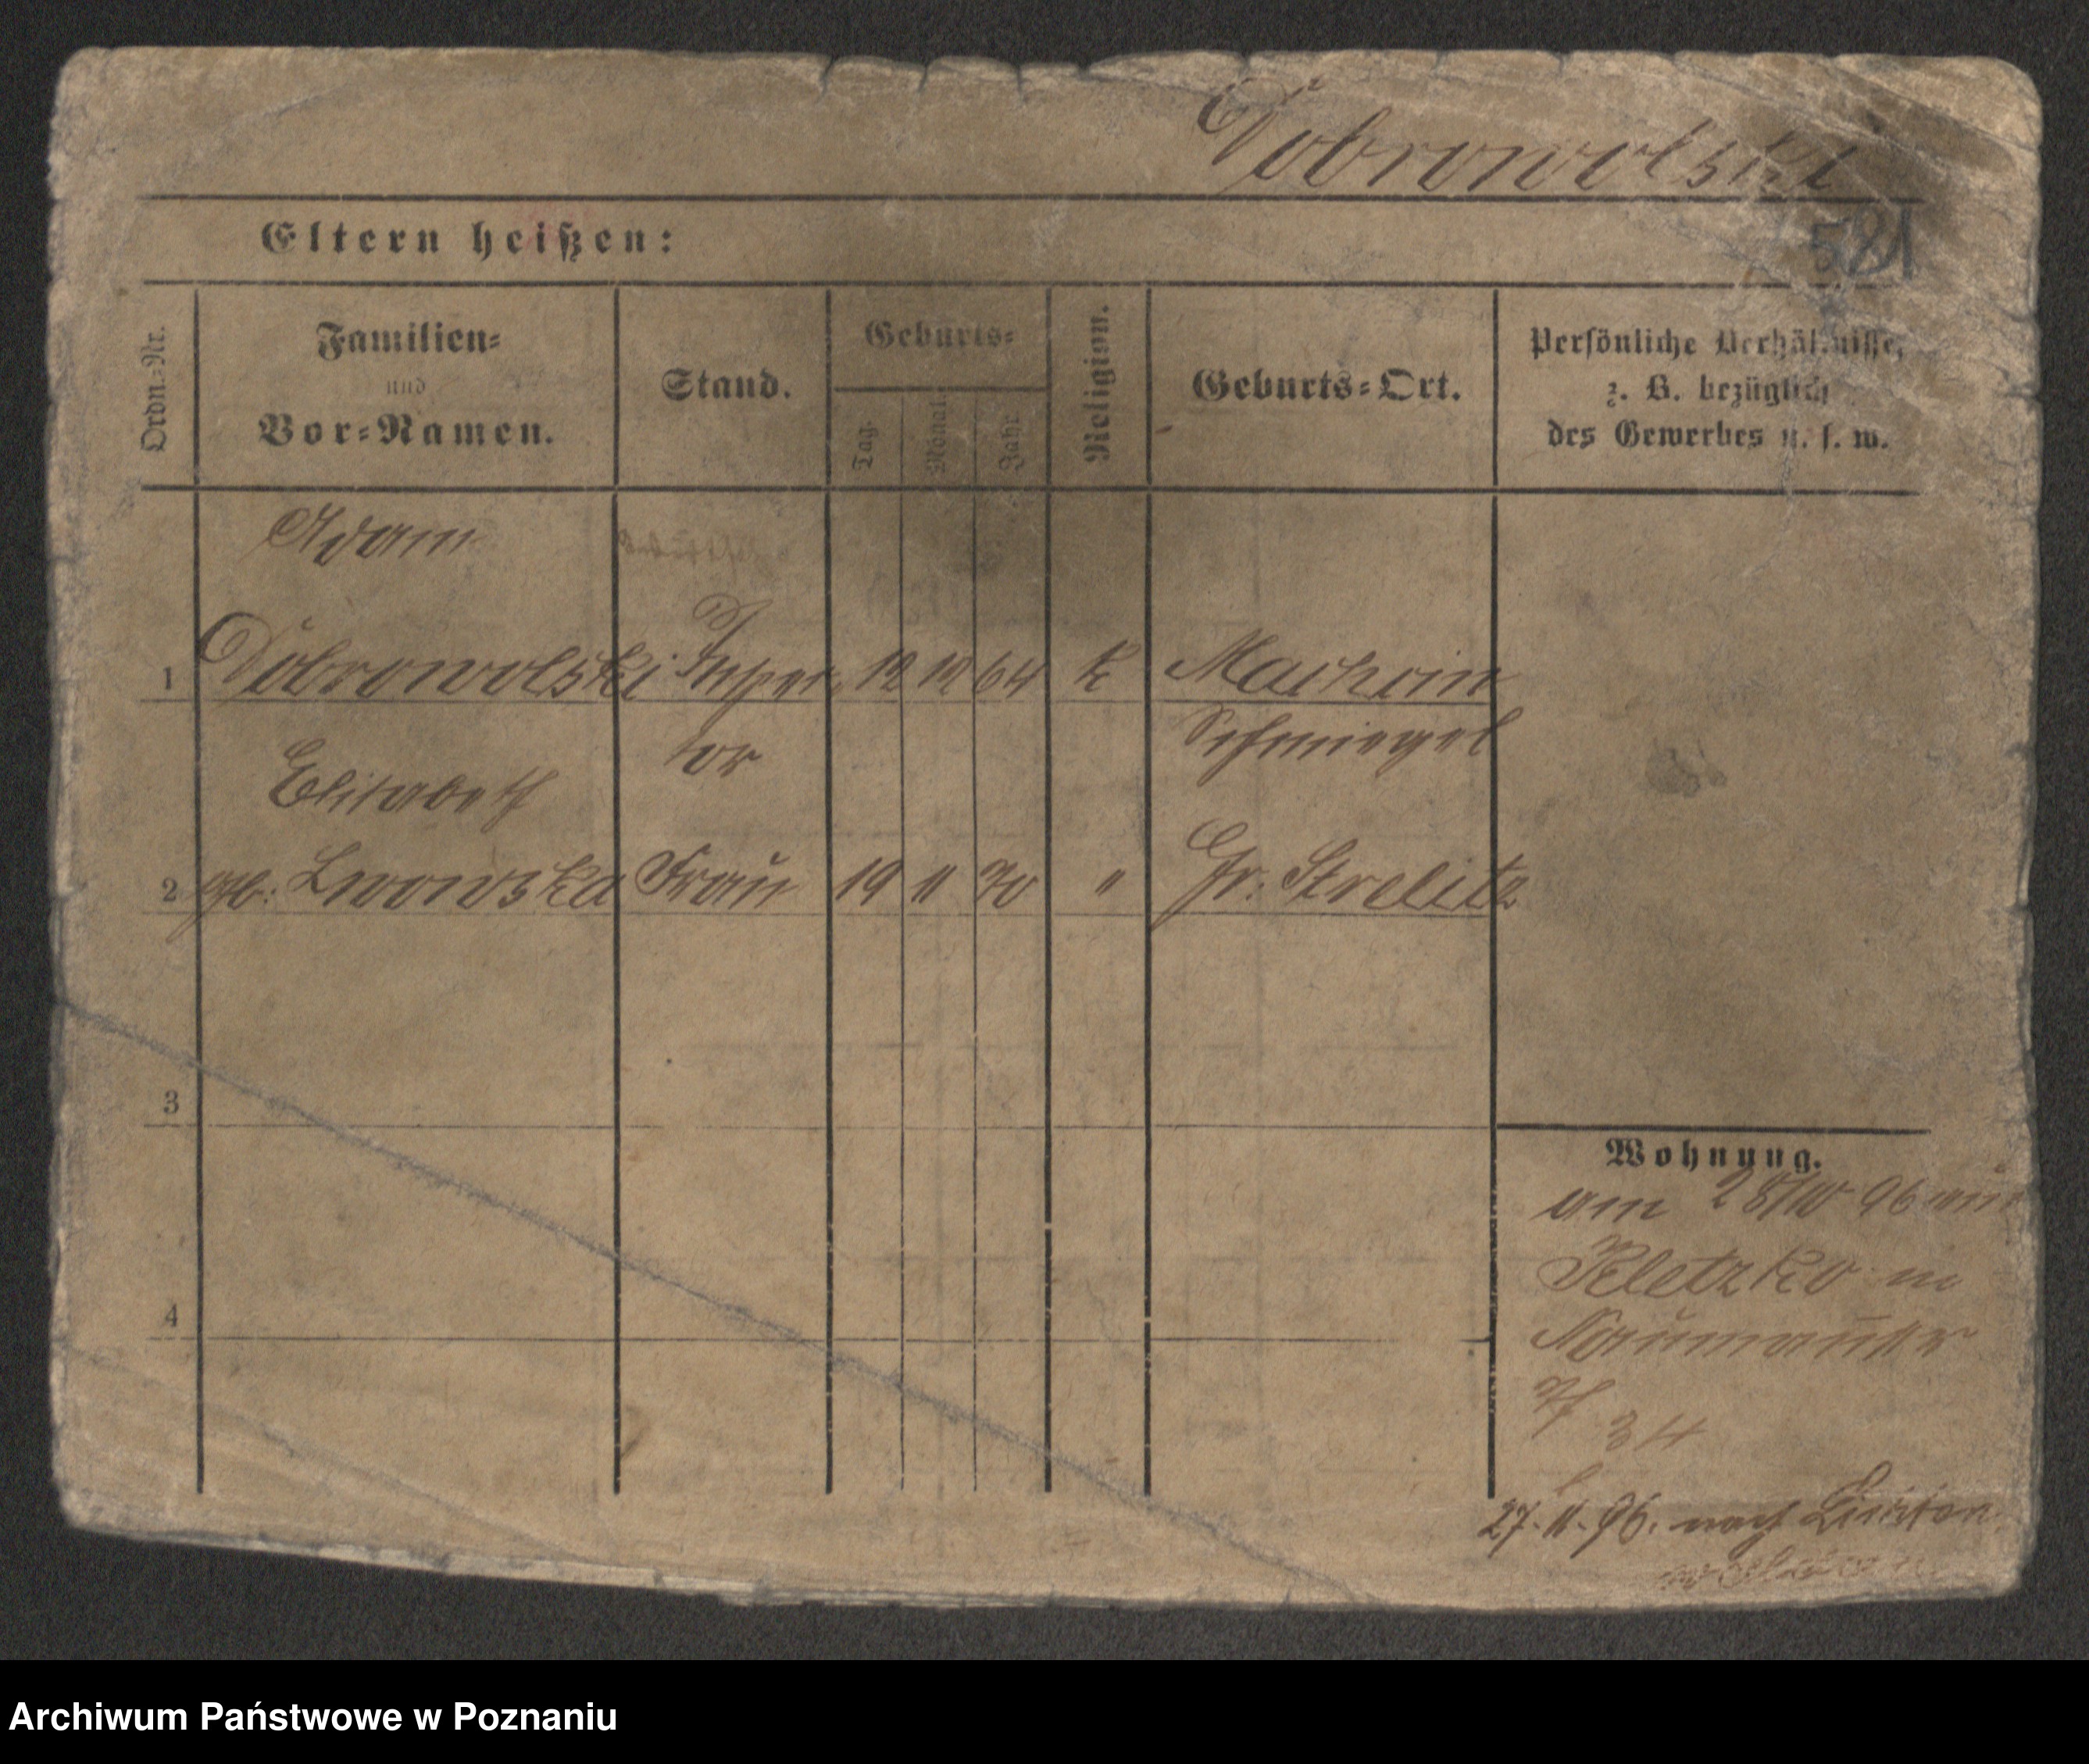 Dobrowolski
Eltern heißen:
581
Ordn.-Nr.
Familien-
und
Vor-Namen.
Stand.
Geburts-
Tag.
Monat.
Jahr
Religion.
Geburts-Ort.
Persönliche Verhältnisse,
z. B. bezüglich
des Gewerbes u. s. w.
Adam
1 Dobrowolski Inspec- 12 12 64 K Machcin
tor Schmiegel
Elisabeth
2 gb. Lwowska Frau 19 11 70 " Gr. Strelitz
3
4
Wohnung.
am 28/10 96 aus
Kletzko in
Naumannstr
34
27.11.96. nach
Archiwum Państwowe w Poznaniu